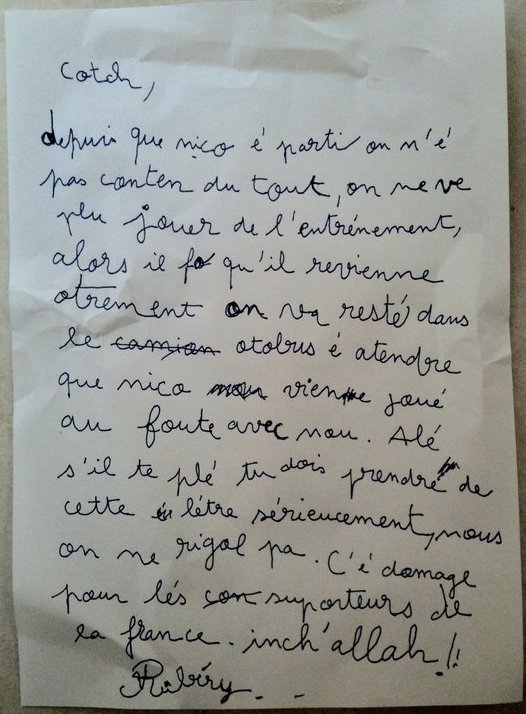 Cotch,
depuis que nico é parti on n'é
pas conten du tout, on ne ve
plu jouer de l'entrénement,
alors il fo qu'il revienne
otrement on va resté dans
le camion otobus é atendre
que nico vienne joué
au foute avec nou. Alé
s'il te plé tu dois prendre de
cette létre sérieucement, nous
on ne rigol pa. C'é domage
pour lés con suporteurs de
la france. inch'allah!!
Ribéry - -